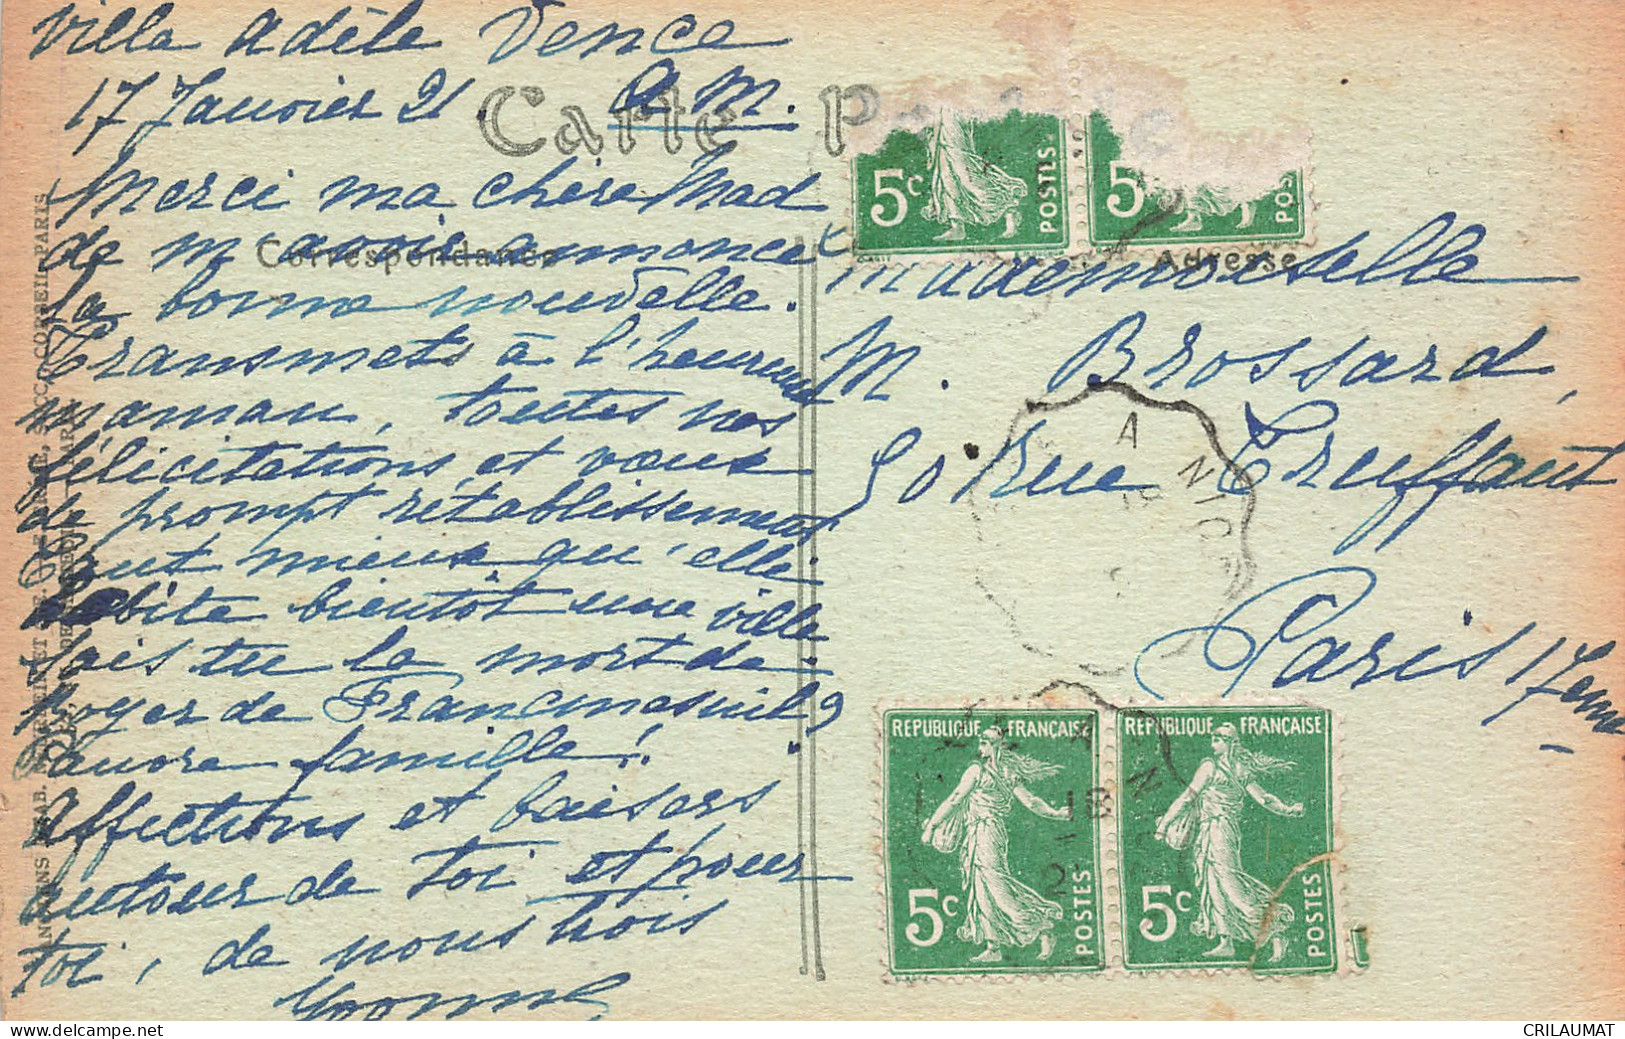 Villa Adèle Vence
17 Janvier 21 A.M.
Carte P
Correspondance
Adresse
Merci ma chère Mad
de m'avoir annoncé
la bonne nouvelle.
Transmets à l'heureuse
maman, toutes nos
félicitations et vœux
de prompt rétablissement
tout mieux qu'elle
habite bientôt une ville
sais tu la mort de
Roger de Francmesnil ?
Pauvre famille !
Affections et baisers
autour de toi et pour
toi, de nous trois
Yvonne
Mademoiselle
M. Brossard,
50 Rue Truffaut
Paris 17eme
5c POSTES
5 POS
A
NICE
REPUBLIQUE FRANÇAISE
5c POSTES
REPUBLIQUE FRANÇAISE
5c POSTES
18
CORBEIL-PARIS
CRILAUMAT